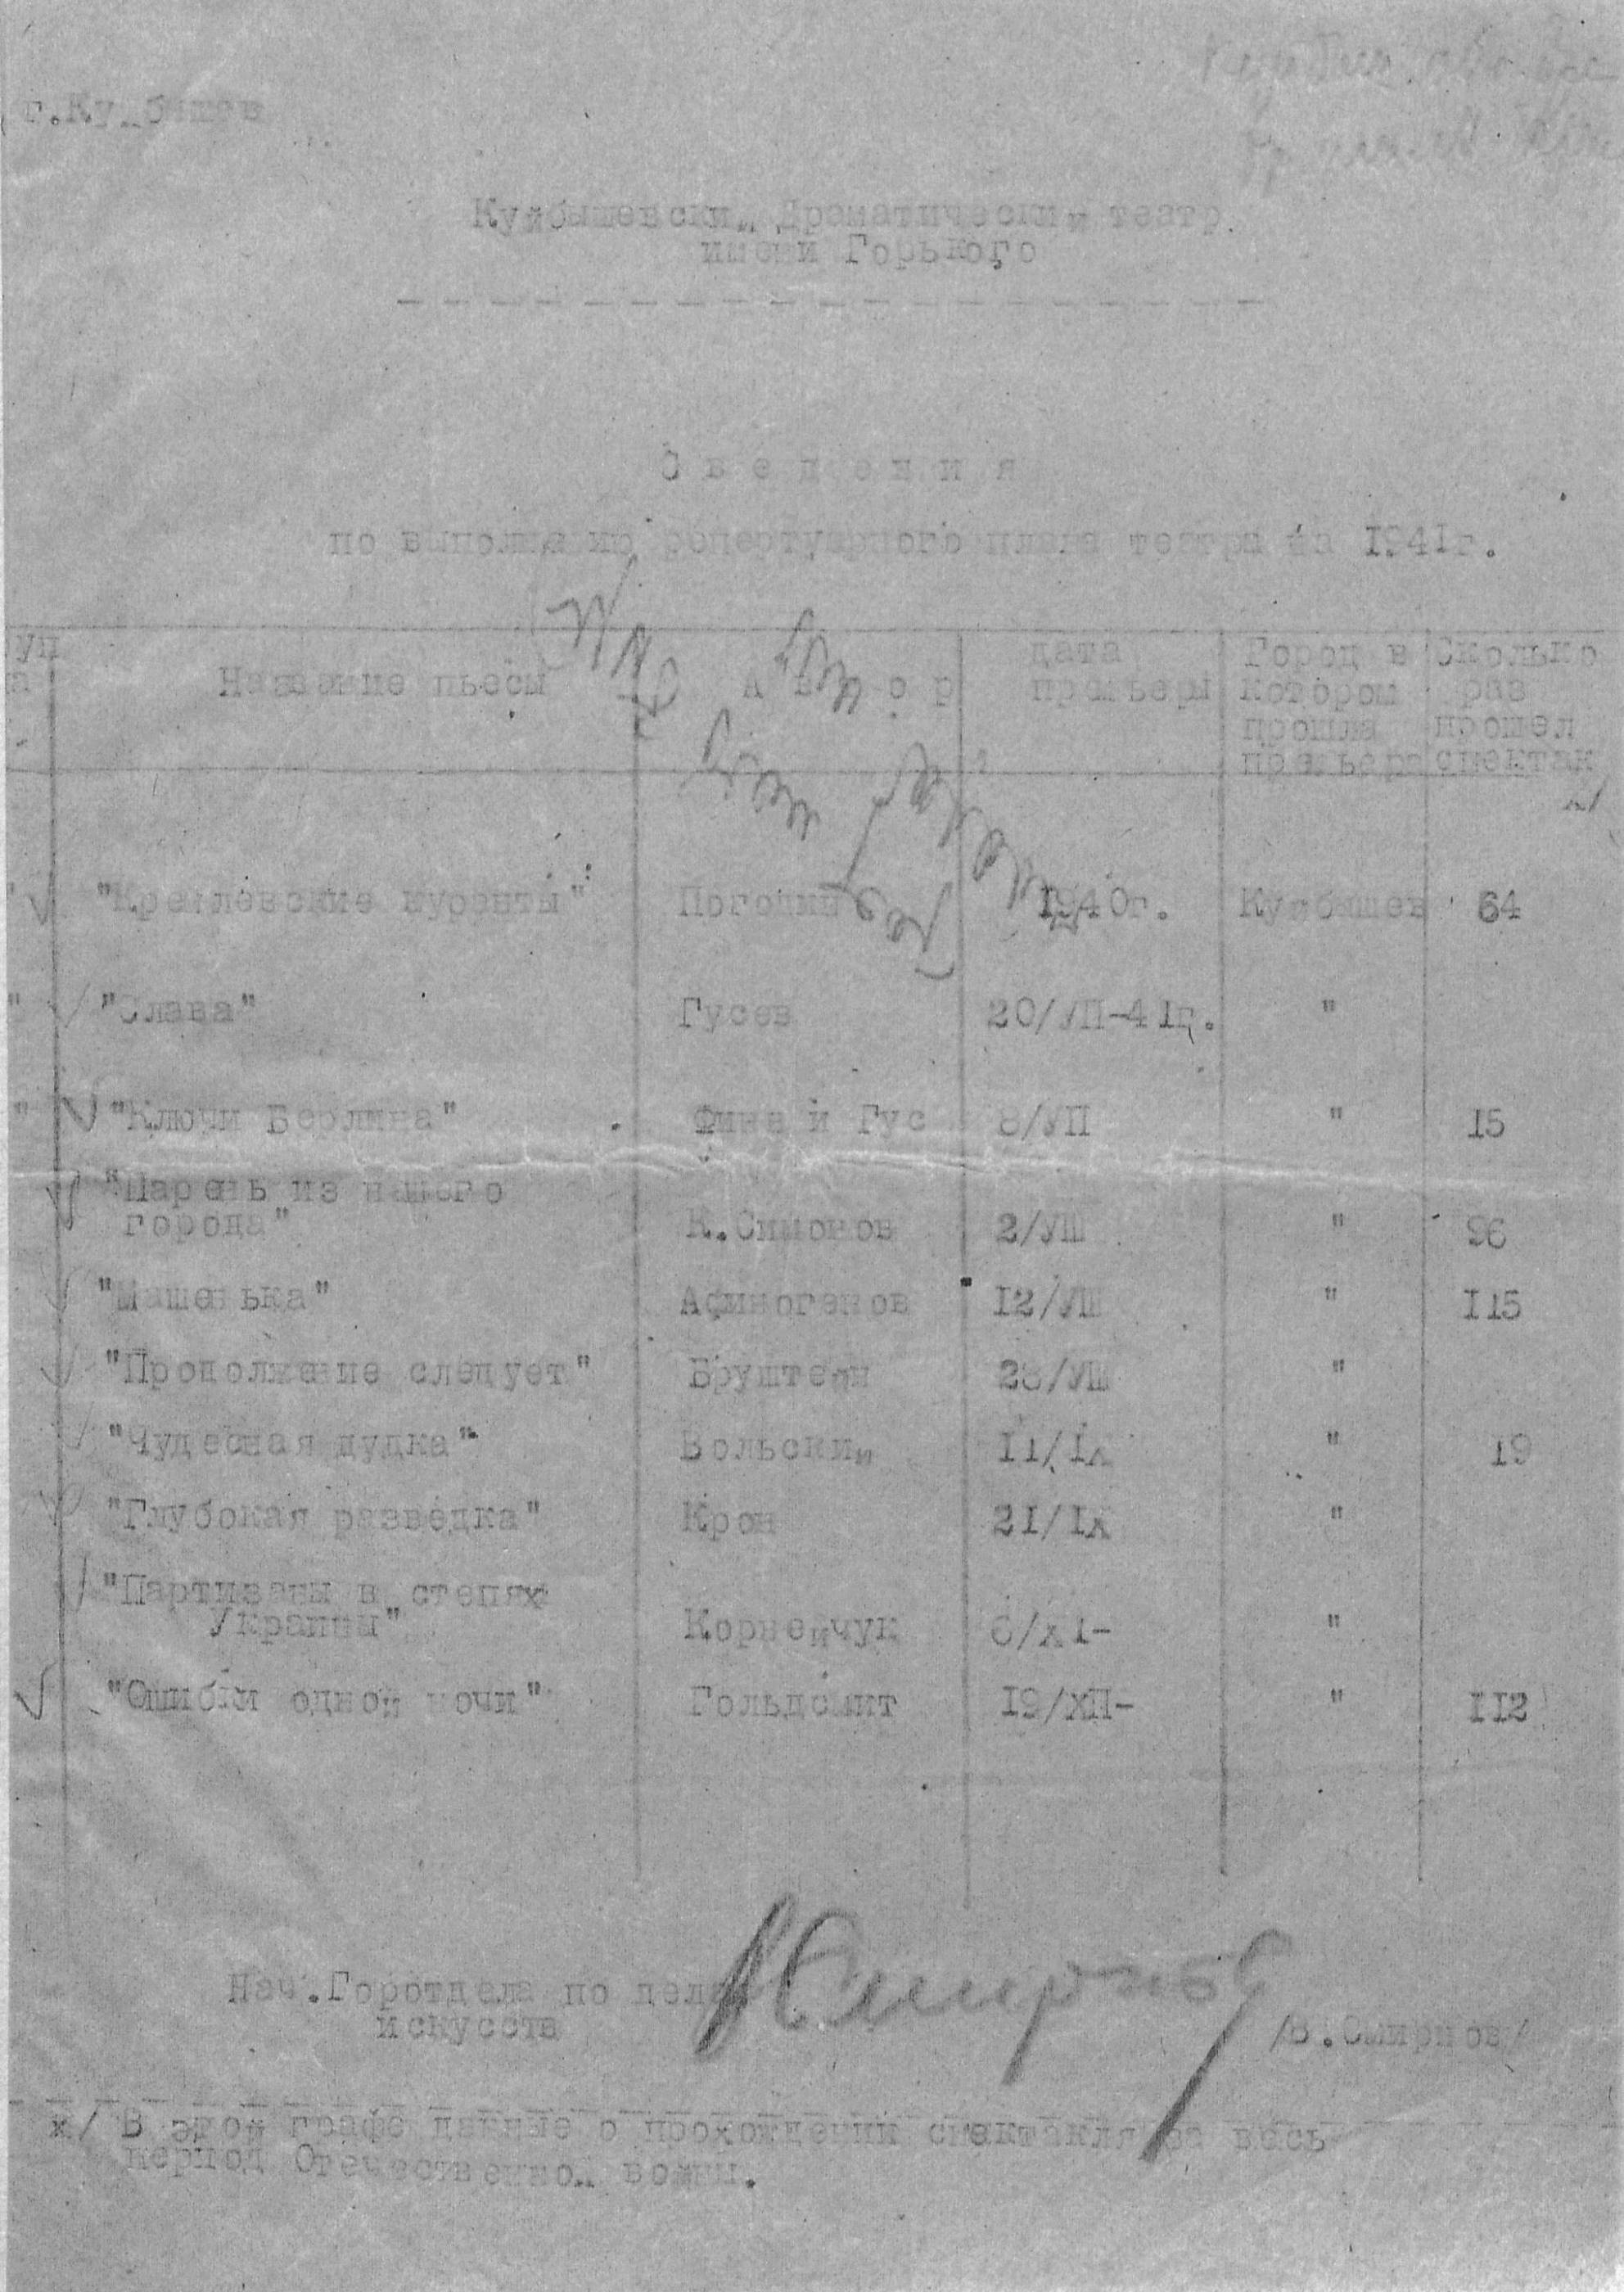 г.Куйбышев
Куйбышевский Драматический театр
имени Горького
Сведения
по выполнению репертуарного плана театра за 1941г.
Название пьесы Автор дата премьеры Город в котором прошла премьера Сколько раз прошел спектак х/
"Кремлевские куранты" Погодин 1940г. Куйбышев 64
"Слава" Гусев 20/УП-41г. "
"Ключи Берлина" Фина и Гус 8/УП " 15
"Парень из нашего
города" К.Симонов 2/УШ " 96
"Машенька" Афиногенов 12/УШ " 115
"Продолжение следует" Бруштейн 28/УШ "
"Чудесная дудка" Вольский 11/IX " 19
"Глубокая разведка" Крон 21/IX "
"Партизаны в степях
Украины" Корнейчук 6/XI- "
"Ошибки одной ночи" Гольдсмит 19/ХП- " 112
Нач.Горотдела по делам
искусств
Смирнов
/В.Смирнов/
х/ В этой графе данные о прохождении спектакля за весь
период Отечественной войны.